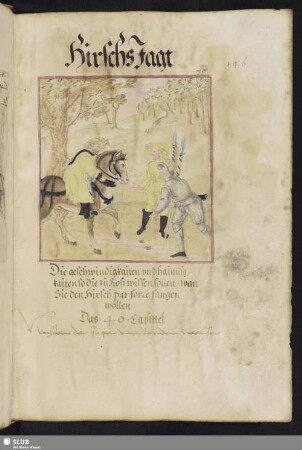 Hirschs Jagt
146
Die geschwindigkaiten und haimlig
kaiten so die zu Roß wissen sollen, wan
Sie den Hirsch par force fangen
wöllen
Das 40 Capittel
SLUB
Wir führen Wissen.